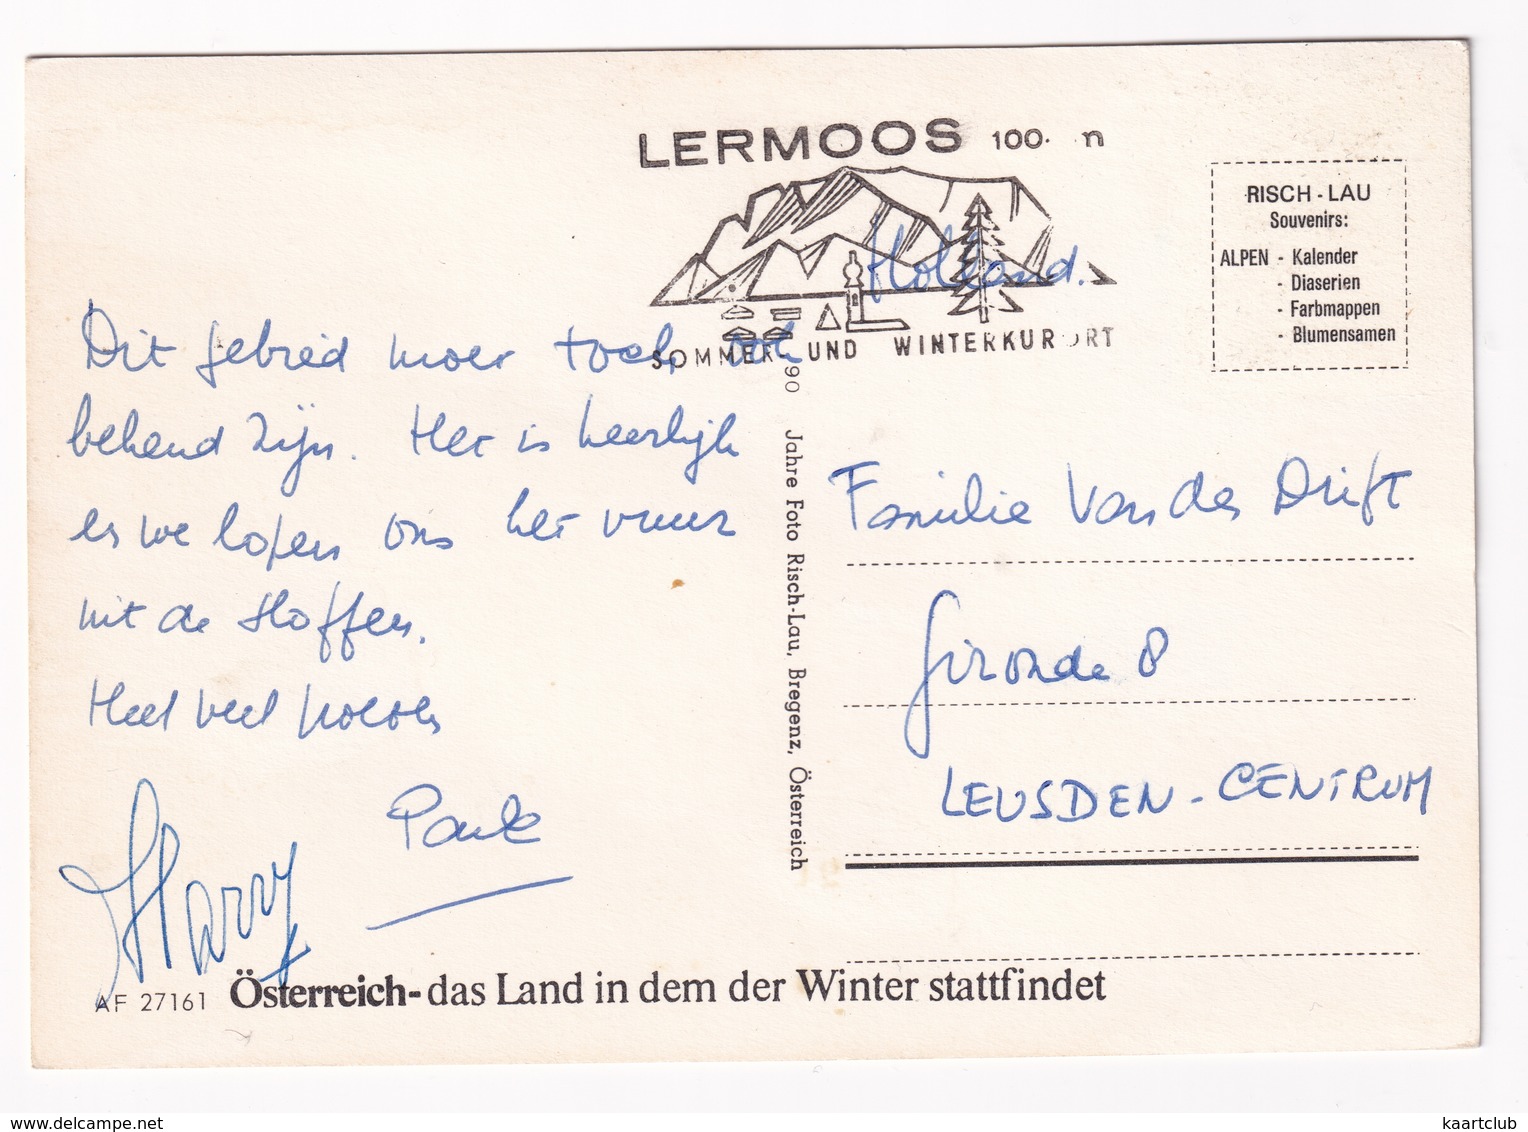 LERMOOS 100
SOMMER UND WINTERKURORT
RISCH-LAU
Souvenirs:
ALPEN - Kalender
- Diaserien
- Farbmappen
- Blumensamen
Holland.
Dit gebied moet toch ook
bekend zijn. Het is heerlijk
en we lopen ons het vuur
uit de sloffen.
Heel veel
Harry
Familie Van der Drift
Gironde 8
LEUSDEN-CENTRUM
90 Jahre Foto Risch-Lau, Bregenz, Österreich
AF 27161
Österreich-das Land in dem der Winter stattfindet
www.delcampe.net
kaartclub